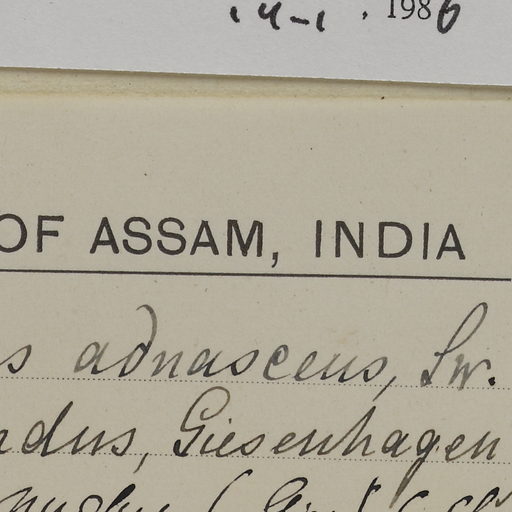 1986
OF ASSAM, INDIA
s adnascens, Sw.
ndus, Giesenhagen